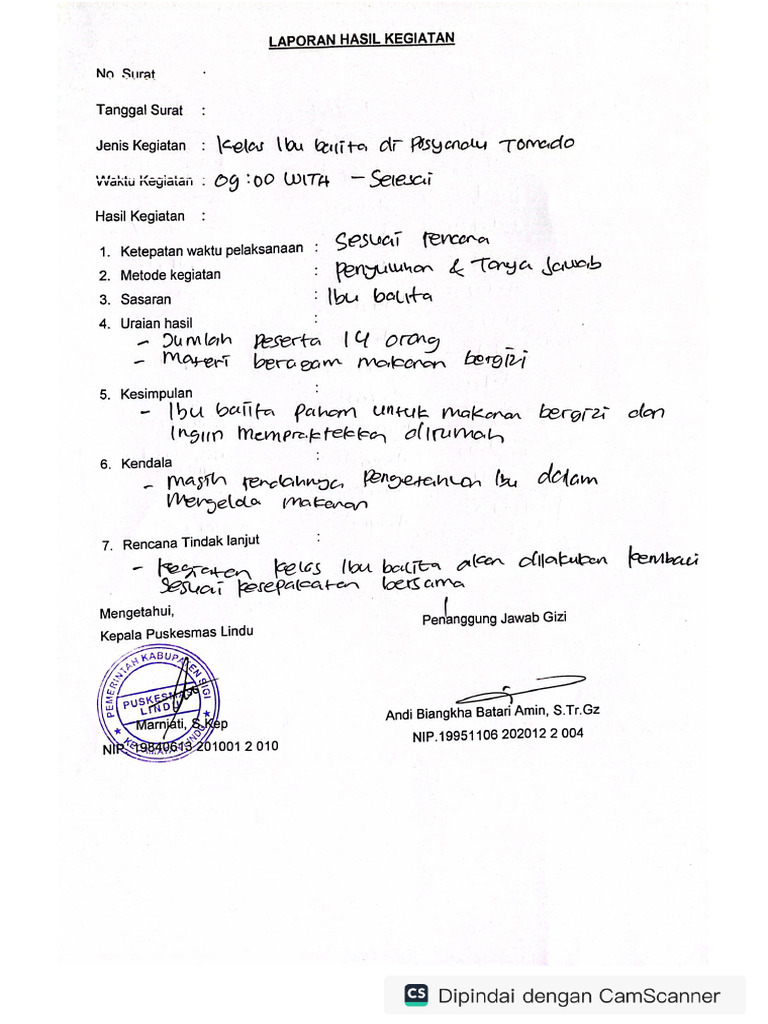 LAPORAN HASIL KEGIATAN
No Surat :
Tanggal Surat :
Jenis Kegiatan : Kelas Ibu balita di Posyandu Tomado
Waktu Kegiatan : 09:00 WITA - Selesai
Hasil Kegiatan :
1. Ketepatan waktu pelaksanaan : Sesuai rencana
2. Metode kegiatan : Penyuluhan & Tanya Jawab
3. Sasaran : Ibu balita
4. Uraian hasil :
- Jumlah peserta 14 orang
- Materi beragam makanan bergizi
5. Kesimpulan :
- Ibu balita paham untuk makanan bergizi dan
Ingin mempraktekkan dirumah
6. Kendala :
- Masih rendahnya pengetahuan Ibu dalam
Mengelola makanan
7. Rencana Tindak lanjut :
- Kegiatan kelas Ibu balita akan dilakukan kembali
Sesuai kesepakatan bersama
Mengetahui,
Kepala Puskesmas Lindu
Penanggung Jawab Gizi
PEMERINTAH KABUPATEN SIGI
PUSKESMAS
LINDU
KECAMATAN LINDU
Marniati, S.Kep
NIP. 19840613 201001 2 010
Andi Biangkha Batari Amin, S.Tr.Gz
NIP.19951106 202012 2 004
CS Dipindai dengan CamScanner